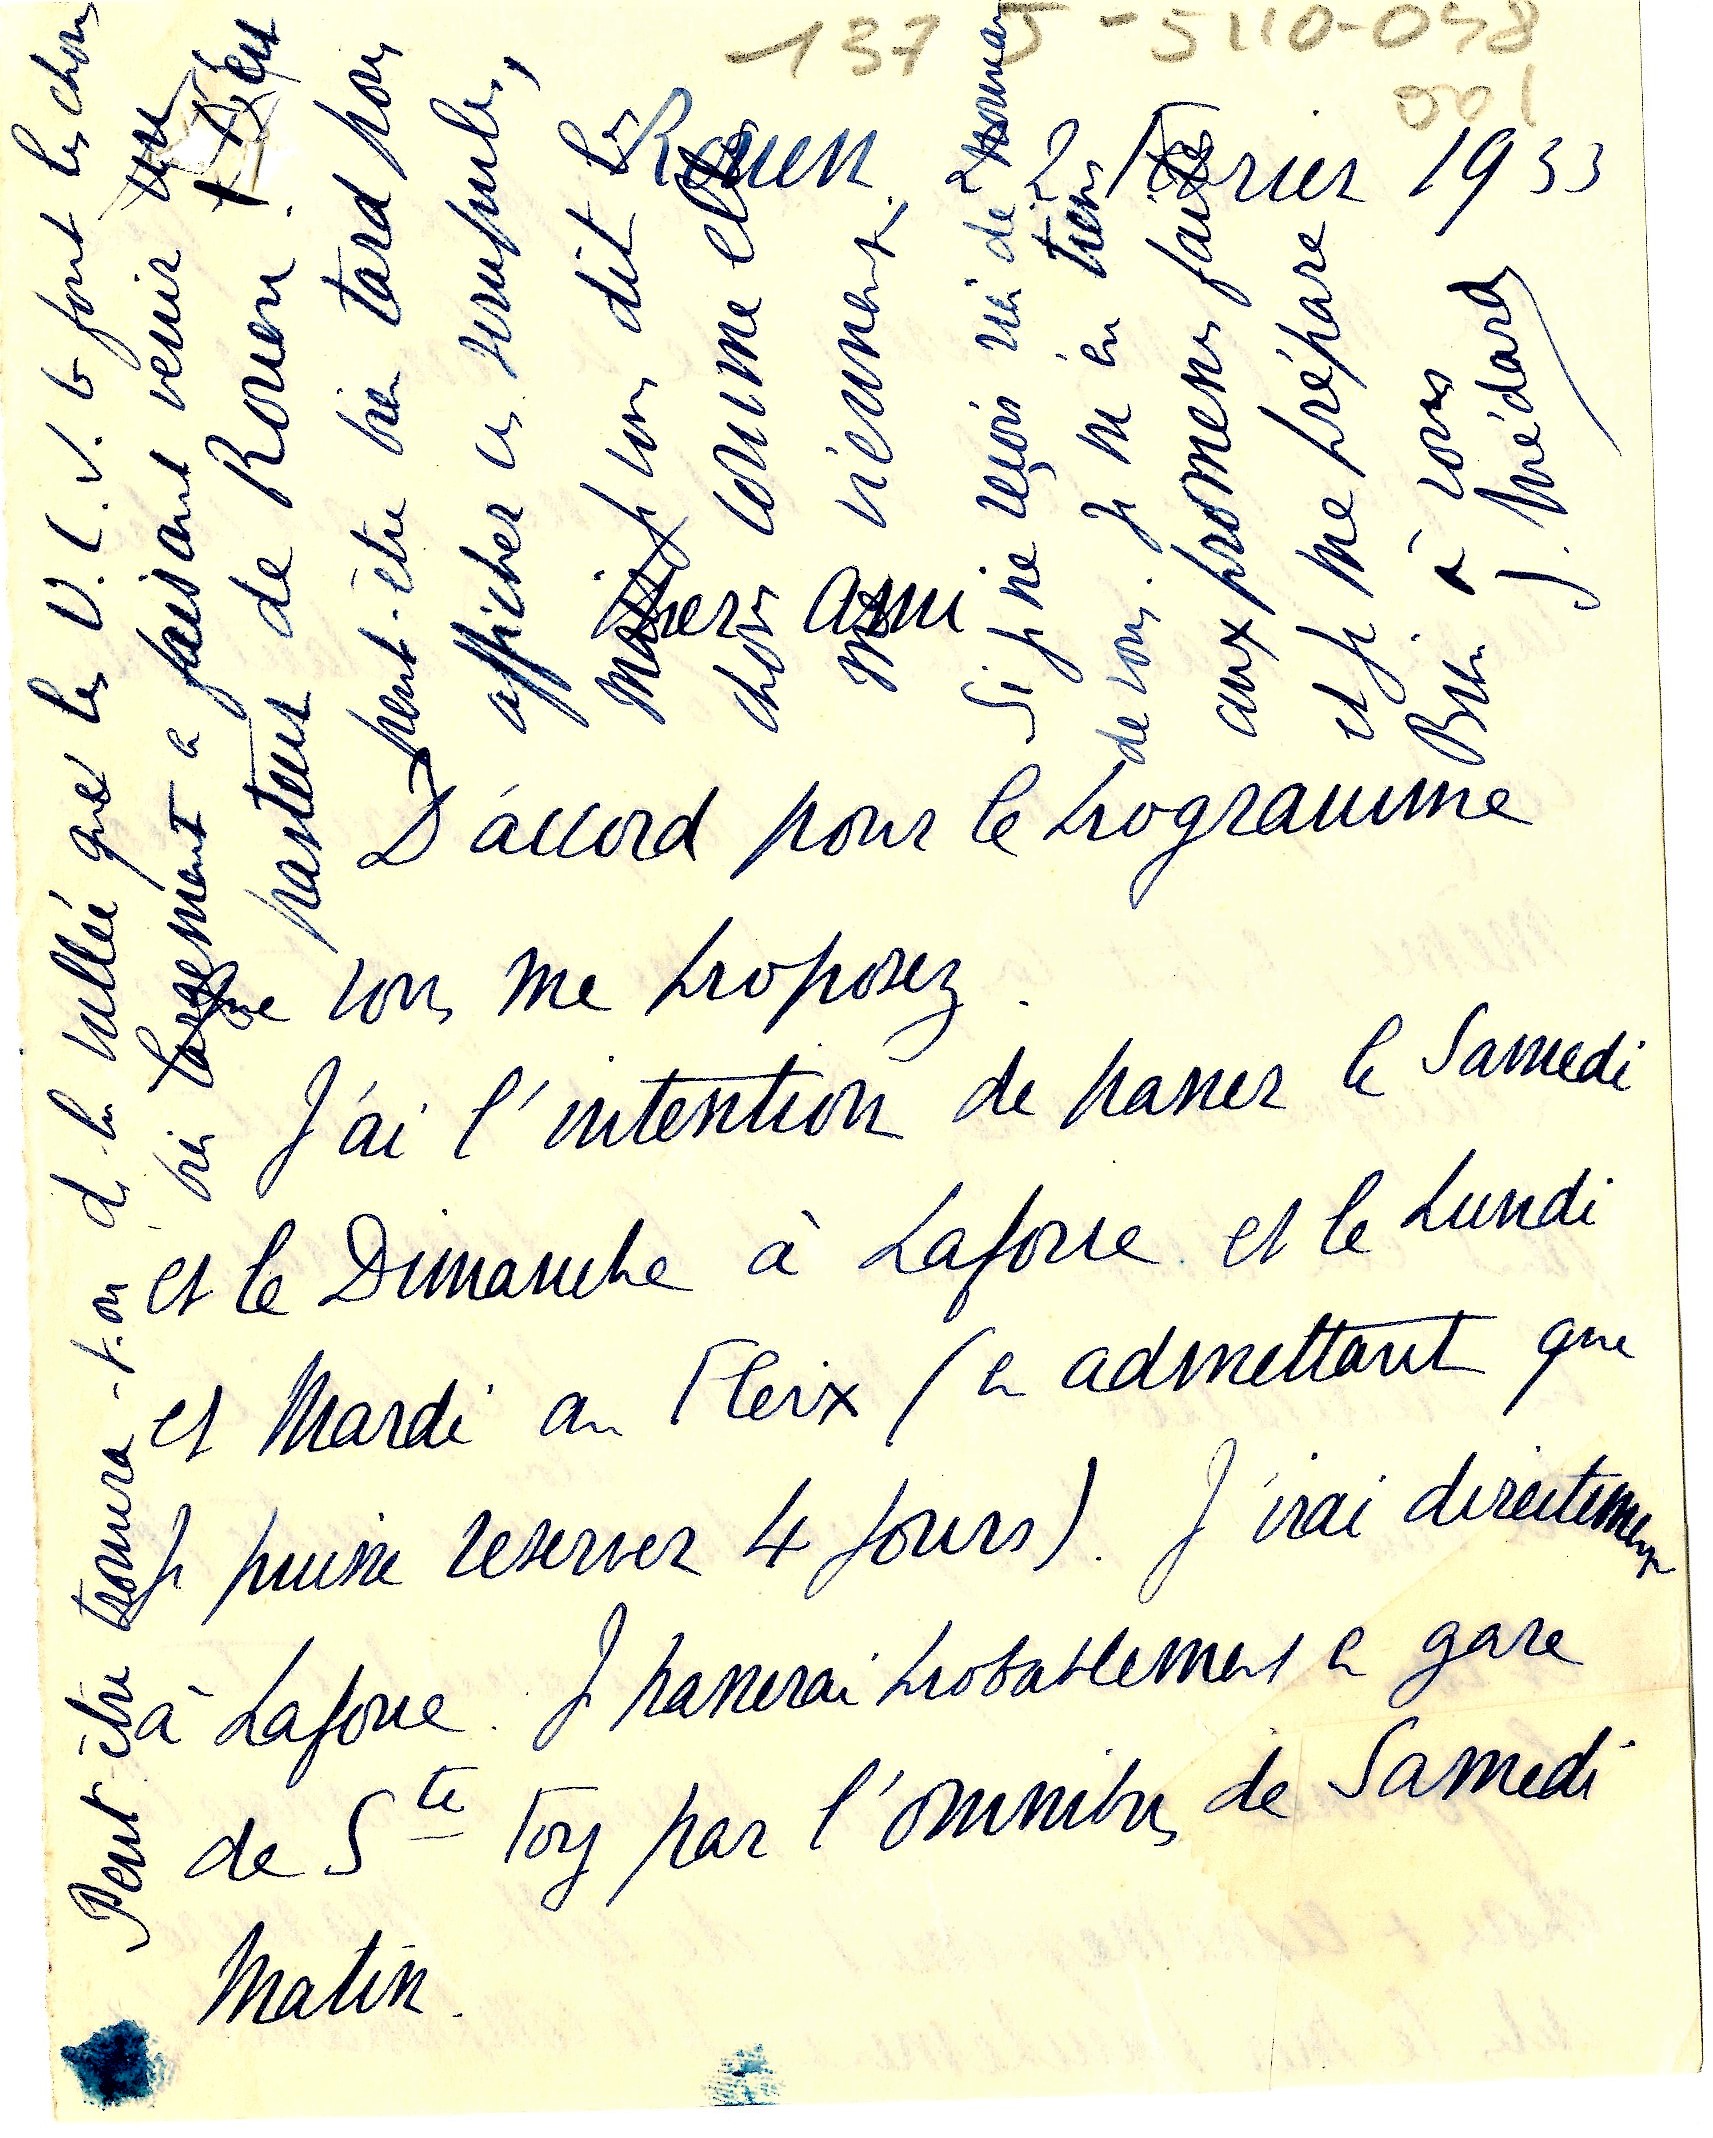 137 5-5110-048
001
Rouen 2 Février 1933
Cher Ami
D'accord pour le programme
que vous me proposez.
J'ai l'intention de passer le Samedi
et le Dimanche à Laforce et le Lundi
et Mardi au Fleix (en admettant que
je puisse reserver 4 jours). J'irai directement
à Laforce. Je passerai probablement en gare
de Ste Foy par l'omnibus de Samedi
Matin.
Peut-être trouvera-t-on de la vallée que les U.C.J.G font les choses
bien largement en faisant venir un
pasteur de Rouen. C'est
peut-être bien tard pour
afficher ces scrupules,
Mais je vous dit les
choses comme elles
me viennent.
Si je ne reçois rien de nouveau
de vous. Je m'en tiens
aux promesses faites
et je me prépare
Bien à vous
J. Médard